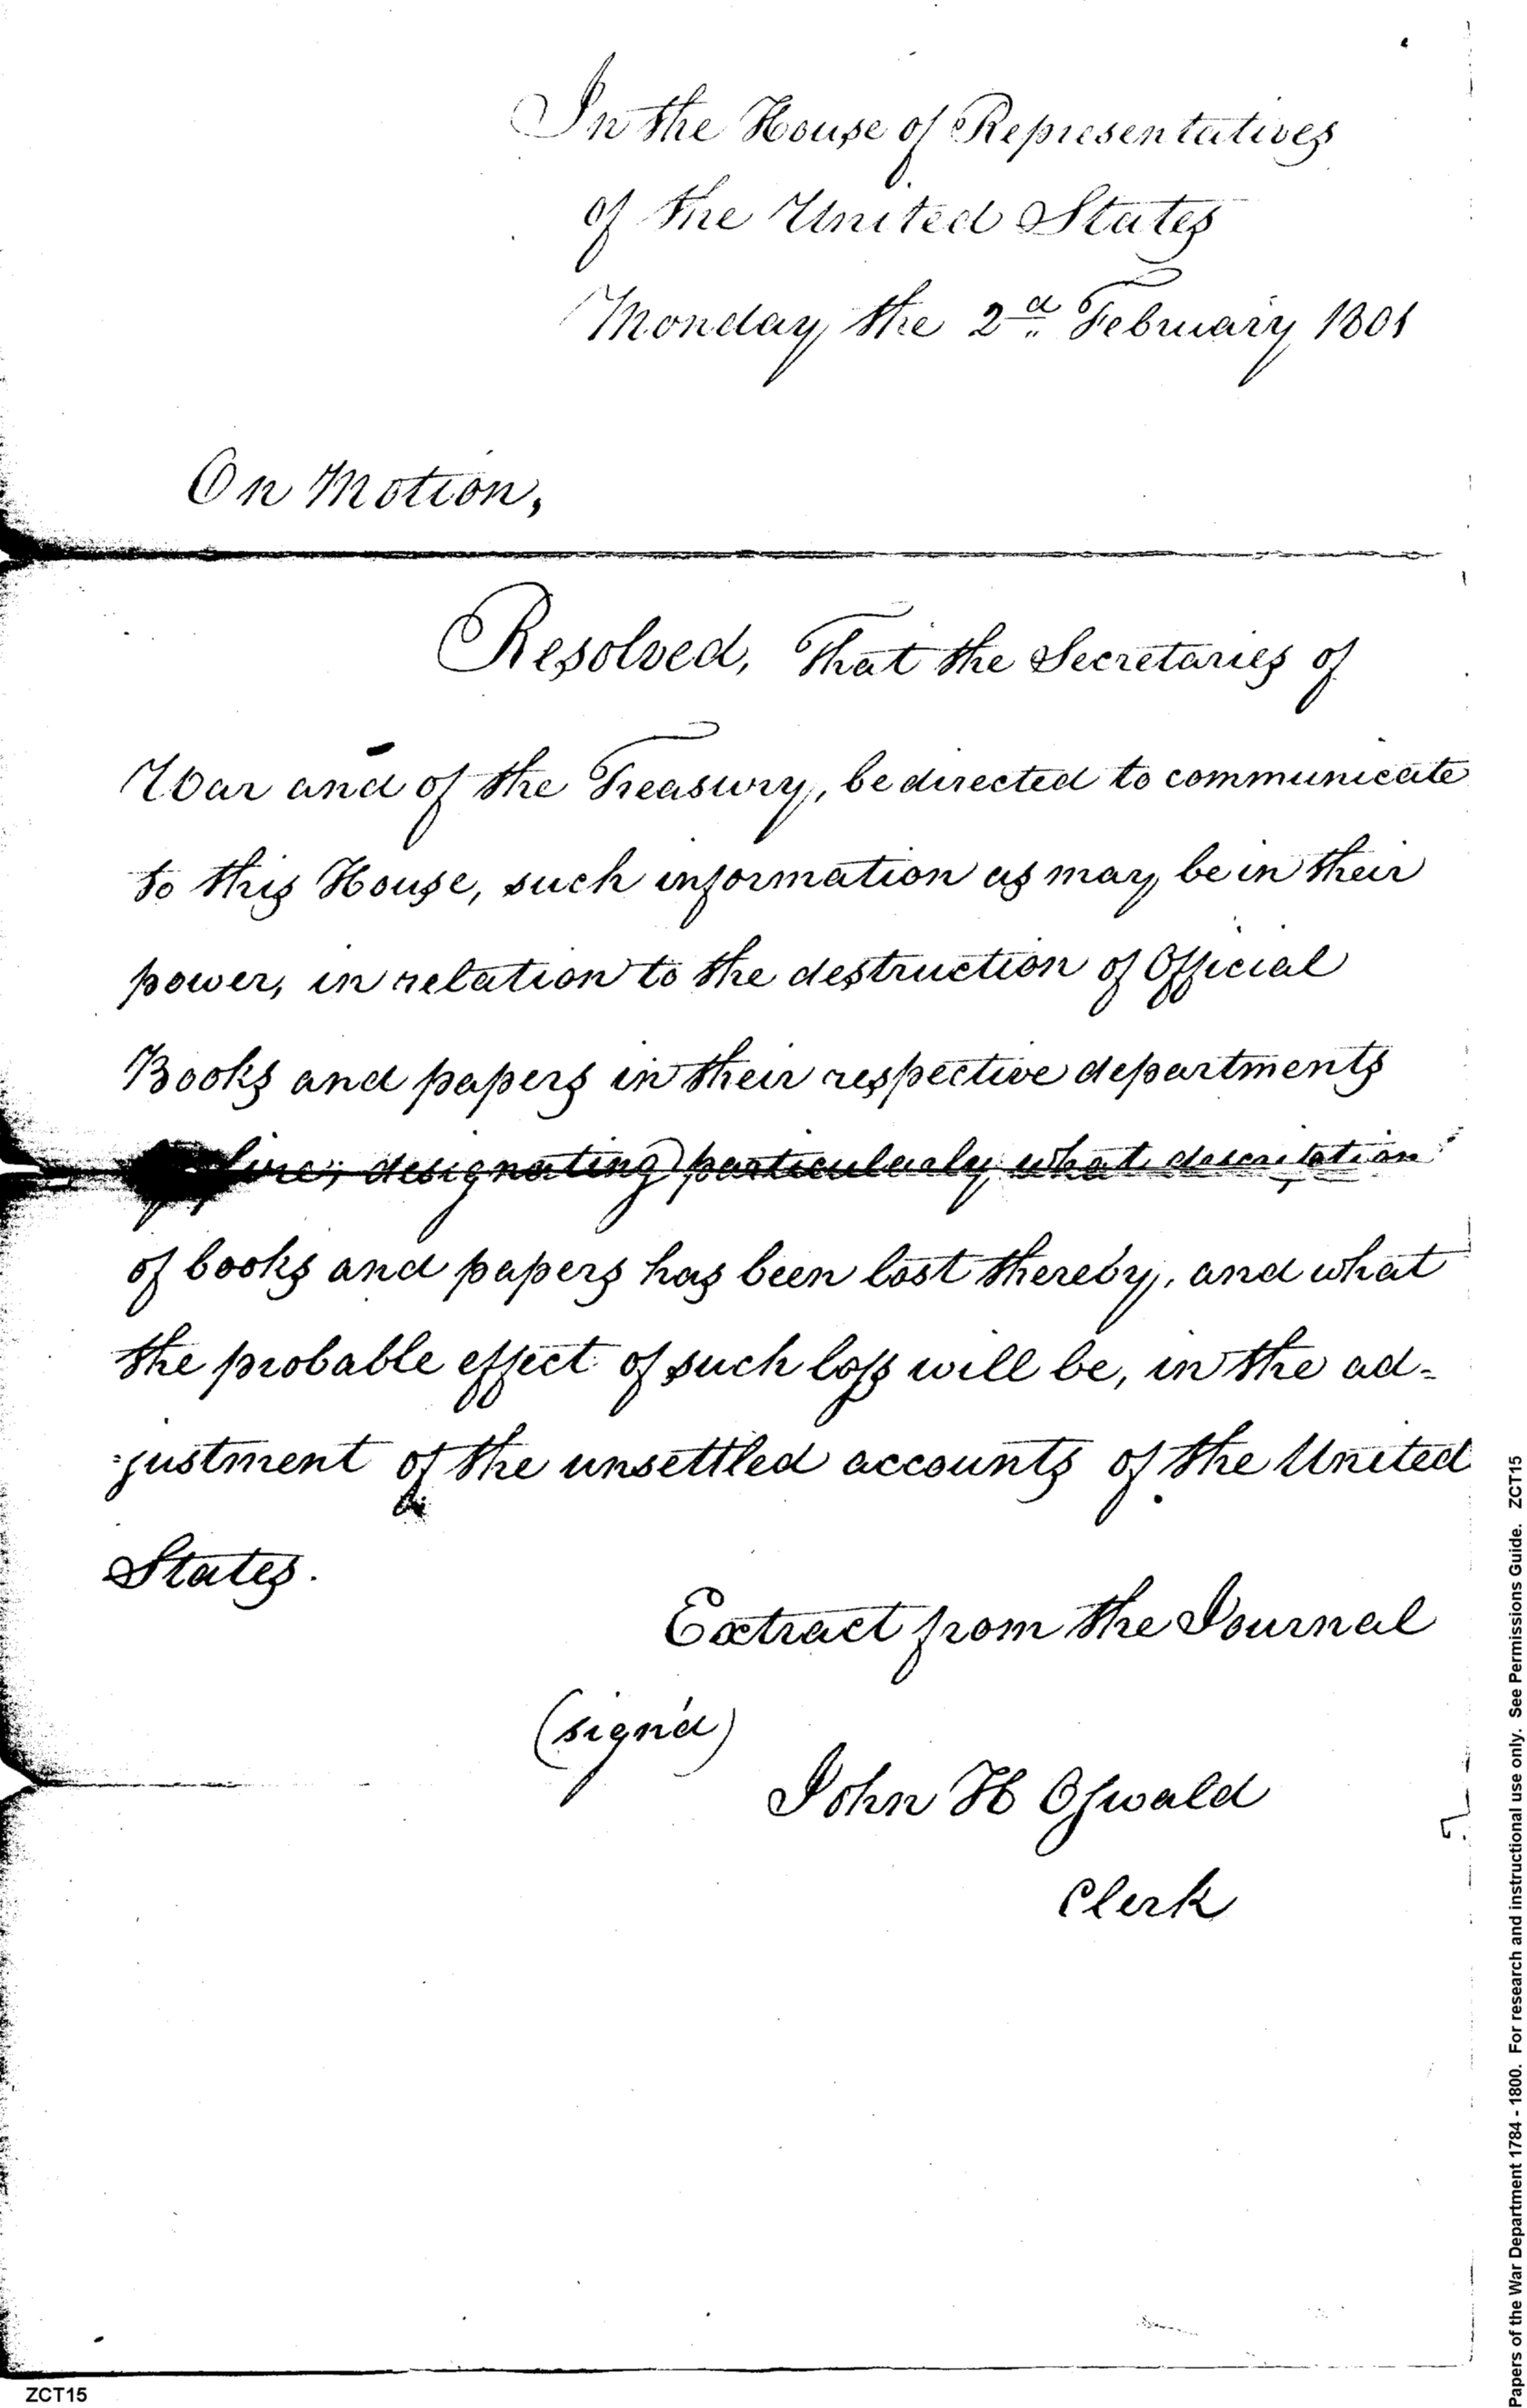 In the House of Representatives
of the United States
Monday the 2d February 1801
On Motion,
Resolved, That the Secretaries of
War and of the Treasury, be directed to communicate
to this House, such information as may be in their
power, in relation to the destruction of Official
Books and papers in their respective departments
by fire; designating particularly what description
of books and papers has been lost thereby, and what
the probable effect of such loss will be, in the ad=
=justment of the unsettled accounts of the United
States.
Extract from the Journal
(sign'd)
John H Oswald
Clerk
ZCT15
Papers of the War Department 1784 - 1800. For research and instructional use only. See Permissions Guide. ZCT15